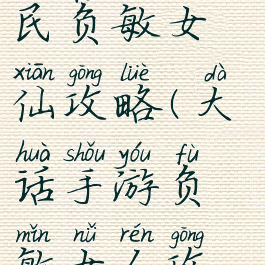 民负敏女
xiān gōng lüè dà
仙攻略(大
huà shǒu yóu fù
话手游负
mǐn nǚ rén gōng
敏女人攻